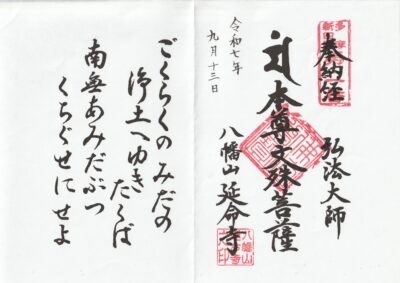 奉納経
弘法大師
本尊文殊菩薩
八幡山延命寺
令和七年
九月十三日
ごくらくのみだの
浄土へゆきたくば
南無あみだぶつ
くちぐせにせよ